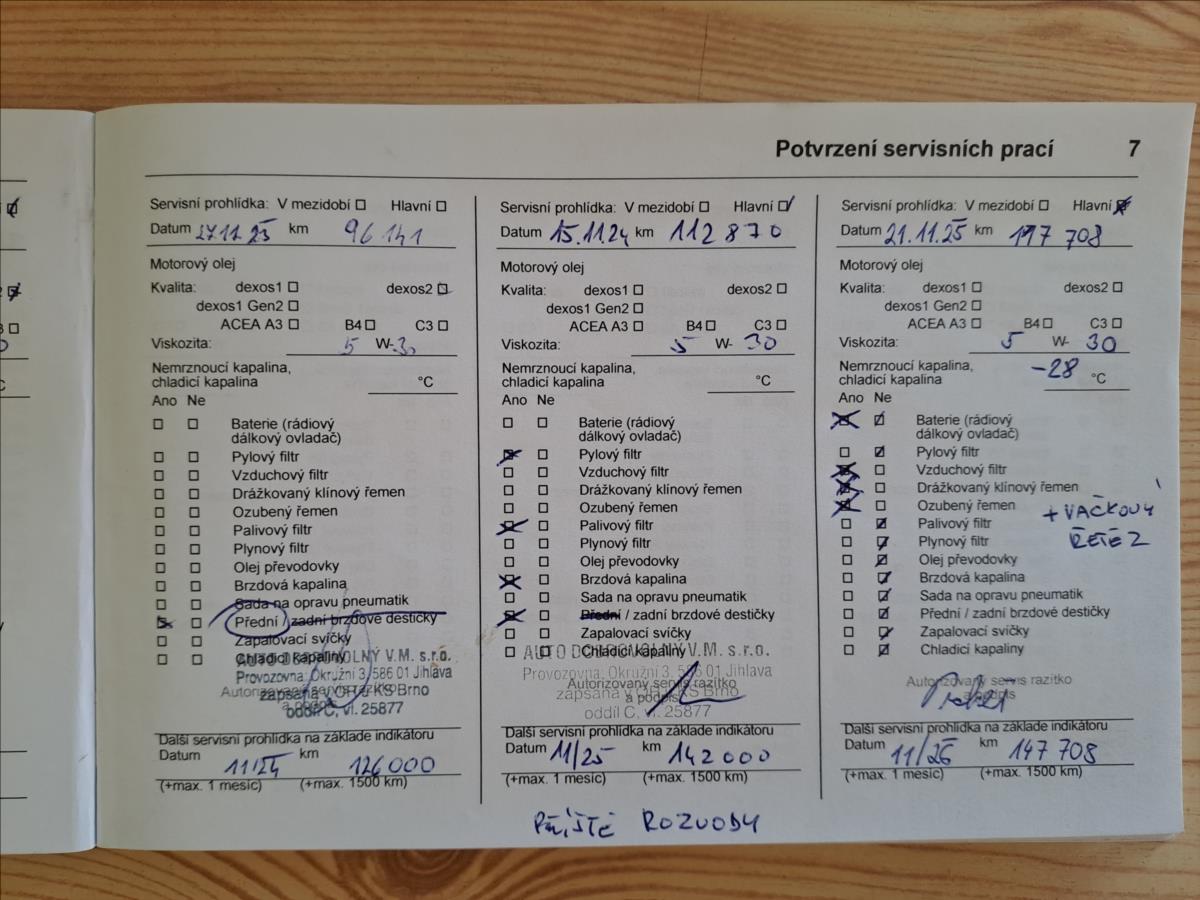 Potvrzení servisních prací 7
Servisní prohlídka: V mezidobí Hlavní
Datum 27.11.25 km 96 141
Motorový olej
Kvalita: dexos1 dexos2
dexos1 Gen2
ACEA A3 B4 C3
Viskozita: 5 W-30
Nemrznoucí kapalina,
chladicí kapalina °C
Ano Ne
Baterie (rádiový
dálkový ovladač)
Pylový filtr
Vzduchový filtr
Drážkovaný klínový řemen
Ozubený řemen
Palivový filtr
Plynový filtr
Olej převodovky
Brzdová kapalina
Sada na opravu pneumatik
Přední / zadní brzdové destičky
Zapalovací svíčky
Chladicí kapaliny
AUTO DOBROVOLNÝ V.M. s.r.o.
Provozovna: Okružní 3, 586 01 Jihlava
zapsána v OR u KS Brno
oddíl C, vl. 25877
Další servisní prohlídka na základě indikátoru
Datum 11/24 km 126 000
(+max. 1 měsíc) (+max. 1500 km)
Servisní prohlídka: V mezidobí Hlavní
Datum 15.11.24 km 112 870
Motorový olej
Kvalita: dexos1 dexos2
dexos1 Gen2
ACEA A3 B4 C3
Viskozita: 5 W- 30
Nemrznoucí kapalina,
chladicí kapalina °C
Ano Ne
Baterie (rádiový
dálkový ovladač)
Pylový filtr
Vzduchový filtr
Drážkovaný klínový řemen
Ozubený řemen
Palivový filtr
Plynový filtr
Olej převodovky
Brzdová kapalina
Sada na opravu pneumatik
Přední / zadní brzdové destičky
Zapalovací svíčky
Chladicí kapaliny
AUTO DOBROVOLNÝ V.M. s.r.o.
Provozovna: Okružní 3, 586 01 Jihlava
Autorizovaný servis razítko
a podpis
zapsána v OR u KS Brno
oddíl C, vl. 25877
Další servisní prohlídka na základě indikátoru
Datum 11/25 km 142 000
(+max. 1 měsíc) (+max. 1500 km)
Servisní prohlídka: V mezidobí Hlavní
Datum 21.11.25 km 117 708
Motorový olej
Kvalita: dexos1 dexos2
dexos1 Gen2
ACEA A3 B4 C3
Viskozita: 5 W- 30
Nemrznoucí kapalina,
chladicí kapalina -28 °C
Ano Ne
Baterie (rádiový
dálkový ovladač)
Pylový filtr
Vzduchový filtr
Drážkovaný klínový řemen
Ozubený řemen + VAČKOVÝ
ŘETĚZ
Palivový filtr
Plynový filtr
Olej převodovky
Brzdová kapalina
Sada na opravu pneumatik
Přední / zadní brzdové destičky
Zapalovací svíčky
Chladicí kapaliny
Autorizovaný servis razítko
a podpis
Další servisní prohlídka na základě indikátoru
Datum 11/26 km 147 708
(+max. 1 měsíc) (+max. 1500 km)
PŘÍŠTĚ ROZVODY